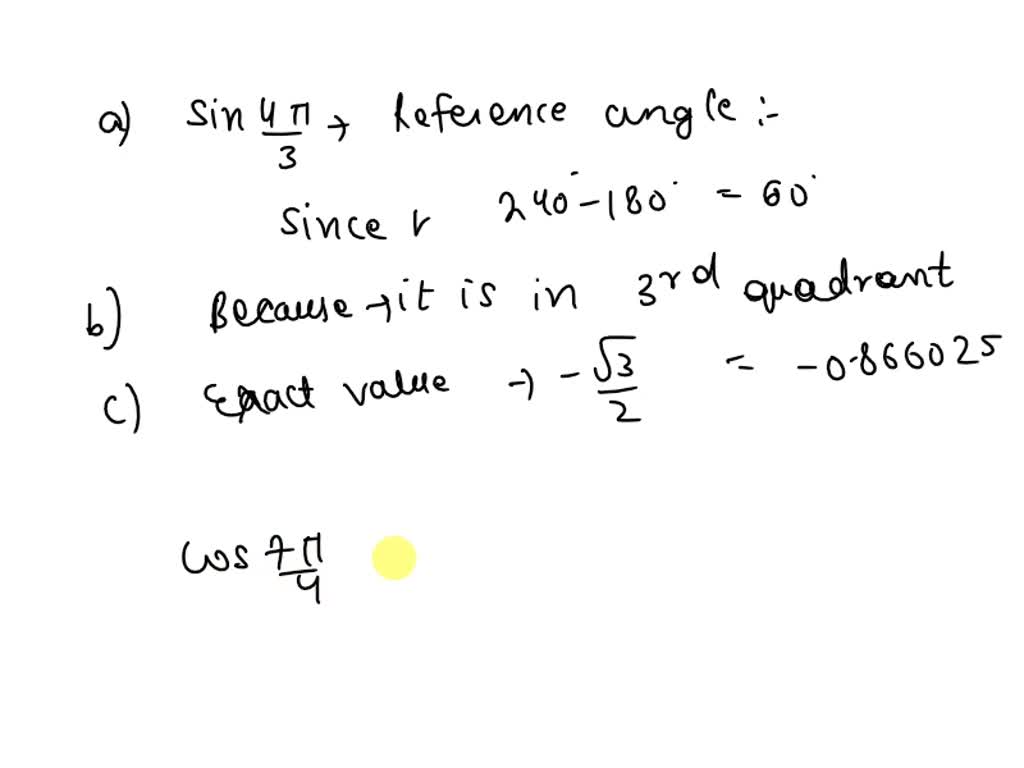 a) sin 4π/3 → Reference angle :-
Since r 240° - 180° = 60°
b) Because → it is in 3rd quadrant
c) Exact value → - √3/2 = -0.866025
cos 7π/4